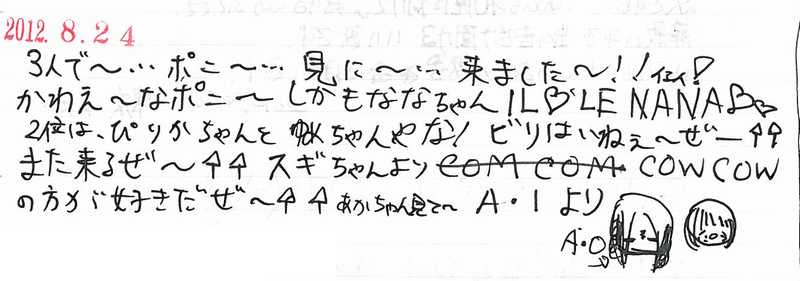 2012.8.24
3人で〜…ポニ〜…見に〜…来ました〜!!イェイ!
かわえ〜なポニ〜しかもななちゃん I L♡LE NANA♡♡
2位は、ぴりかちゃんとゆめちゃんやな! ビリはいねぇ〜ぜー↑↑
また来るぜ〜↑↑ スギちゃんより COM COM COWCOW
の方が好きだぜ〜↑↑ あかちゃん見て〜 A・Iより
A・O